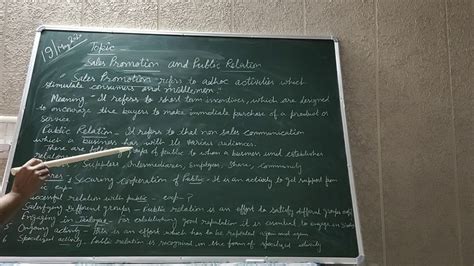 19/May/20
Topic
Sales Promotion and Public Relation
"Sales Promotion refers to adhoc activities which
stimulate consumers and middlemen."
Meaning - It refers to short term incentives, which are designed
to encourage the buyers to make immediate purchase of a product or
service
Public Relation - It refers to that non sales communication
which a business has with its various audiences.
There are of public to whom a business and establishes
relation - Suppliers, Intermediaries, Employees, Share, Community
Securing cooperation of Public - It is an activity to get support from
Successful relation with public - exp?
Satisfying different groups - Public relation is an effort to satisfy different groups
4 Engaging in Dialogue - For establishing good reputation it is essential to engage in
5 Ongoing activity - This is an effort which has to be repeated again and again
6 Specialised activity - Public relation is recognised in the form of specialised activity